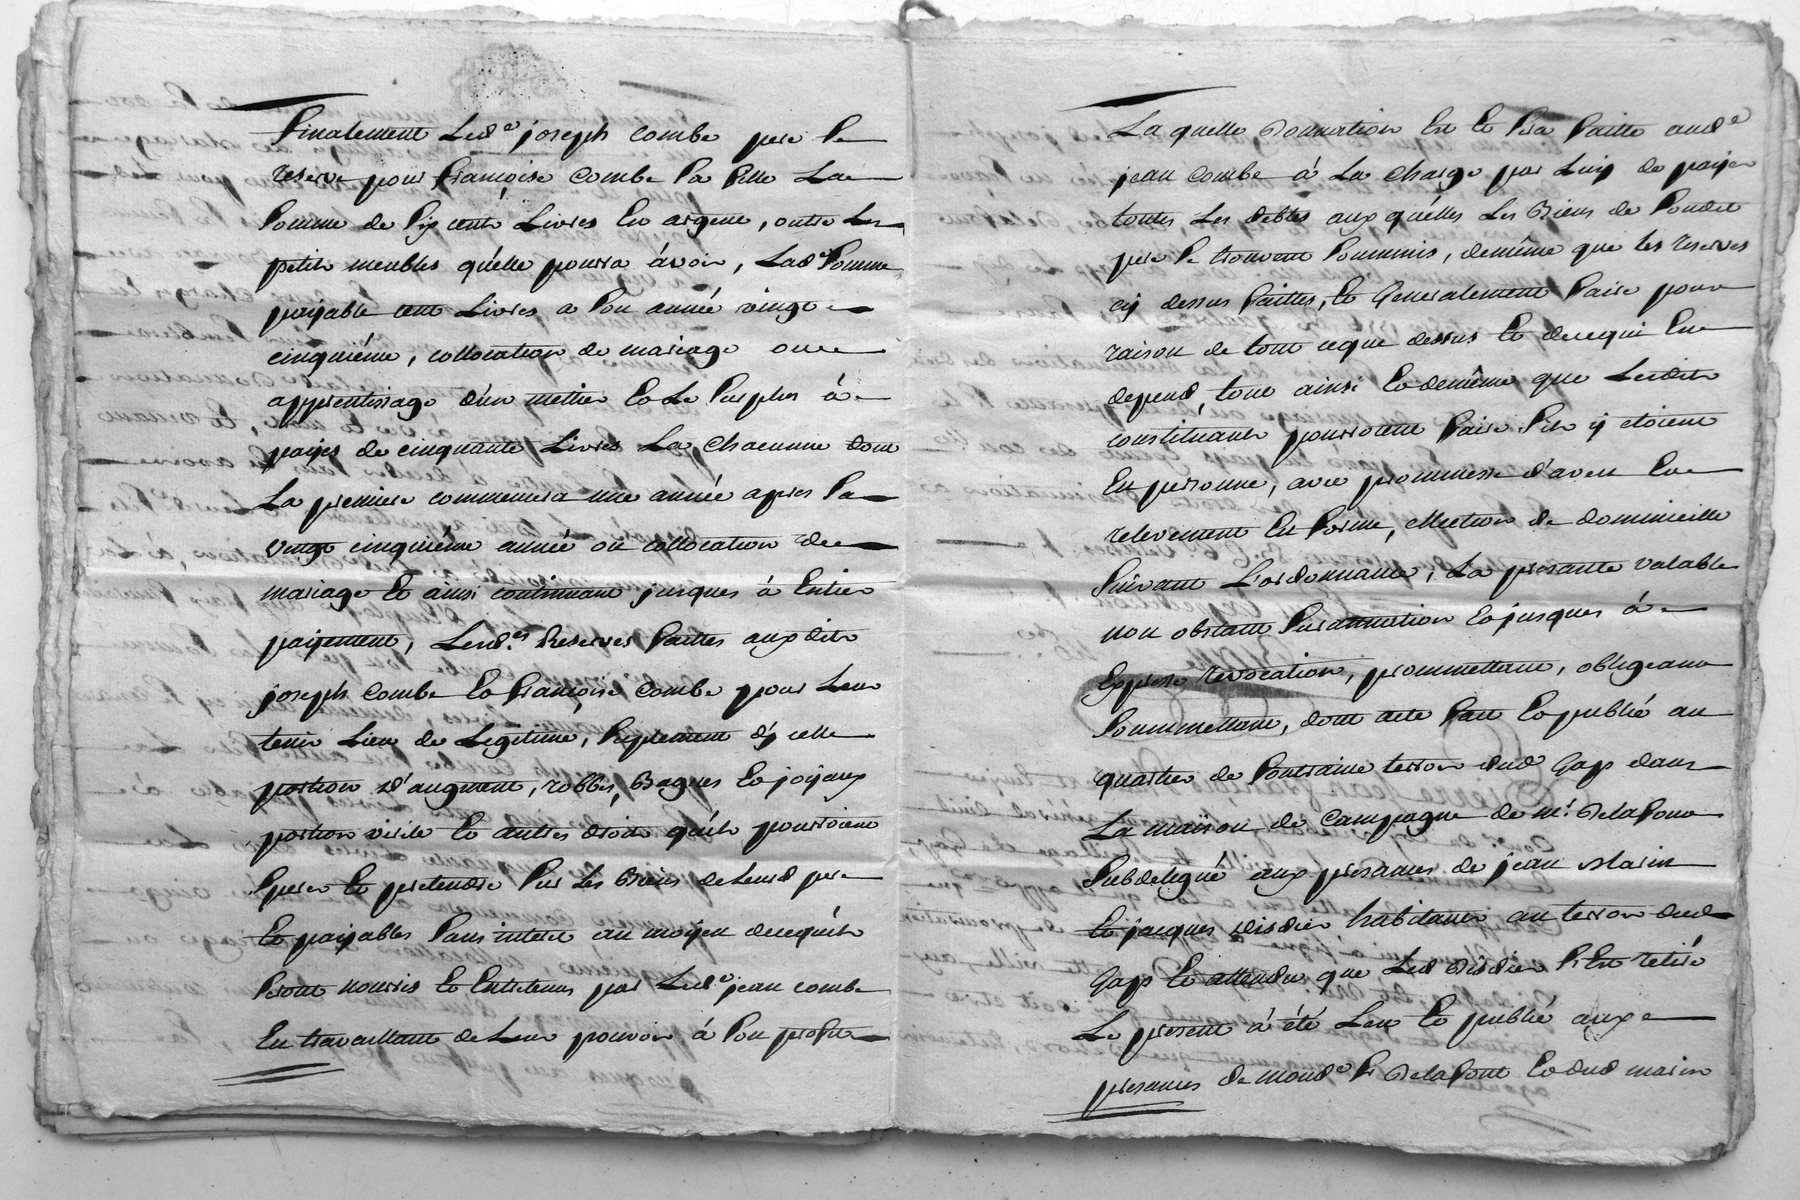 Finalement Led.e joseph combe pere se
reserve pour françoise combe sa fille La
somme de six cents Livres En argent, outre Les
petits meubles qu'elle pourra avoir, Lad.e somme
payable cent Livres a son année vingt
cinquiéme, collocation de mariage ou
apprentissage d'un mettier Et Le surplus à
payes de cinquante Livres La, chacunne dont
La premiere commencera une année apres sa
vingt cinquiéme année ou collocation de
mariage Et ainsi continuant jusques à Entier
payement, Lesd.es Reserves faittes auxdits
joseph combe Et françoise combe pour Leur
tenir Lieu de Legitime, suplement d'jcelle
portion d'augment, robbes, Bagues Et joyaux
portion virile Et autres droits qu'ils pourroient
sperer Et pretendre sur Les Biens de Leurd pere
Et payables sans interet au moyen decequ'ils
seront nourris Et Entretenus par Led.e jean combe
En travaillant de Leur pouvoir à son profit
La quelle Donnation Est Et sera faitte aud.e
jean combe à La charge par Luy de payer
toutes Les debtes aux quelles Les Biens de sondit
pere se trouvent soummis, demême que les reserves
cy dessus faittes, Et Generalement faire pour
raison de tout ceque dessus Et decequi En
depend, tout ainsi Et demême que Lesdits
constituants pourroient faire s'ils y etoient
En personne, avec prommesse d'aveu En
relevement En forme, ellection de dommicille
suivant L'ordonnance, La presante valable
non obstant surannation Et jusques à
Expresse revocation, prommettant, obligeant
soummettant, dont acte fait Et publié au
quartier de fontraine terroir dud Gap dans
La maison de Campagne de m.r Delafont
subdelegué aux presances de jean Marin
Et jacques Disdier habitants au terroir dud
Gap Et attendu que Led Disdier s'Est retiré
Le present à été Leu Et publié aux
presances de mond.e s.r Delafont Et dud marin